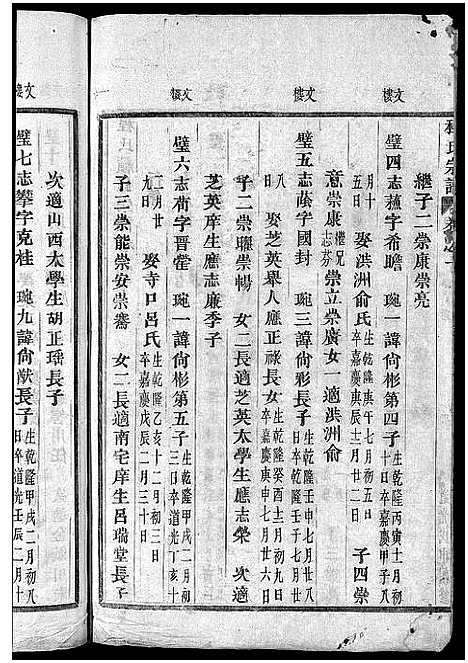 程氏宗譜
繼子二崇康崇亮
文樓
璧四志蘊字希瞻 琬一諱尙彬第四子 生乾隆丙寅十二月初十日卒嘉慶甲子八月十日
娶洪洲俞氏 生乾隆庚午七月初五日卒嘉慶庚辰五月廿二日 子四崇
意崇康 繼兄志芬 崇立崇廣女一適洪洲俞
文樓
璧五志蔭字國封 琬三諱尙彩長子 生乾隆壬申七月廿八日卒乾隆壬子七月廿八
娶芝英舉人應正祿長女 生乾隆癸酉十二月初九日卒嘉慶庚申七月廿六日
子二崇䏈崇暢 女二長適芝英太學生應志榮 次適
芝英庠生應志廉季子
文樓
璧六志衛字晋藿 琬一諱尙彬第五子 生乾隆甲戌二月初三日卒道光丁亥十二月廿九日
娶寺口呂氏 生乾隆乙亥十二月初三日卒嘉慶戊辰二月三十日
子三崇能崇安崇審 女二長適南宅庠生呂瑞堂長子
次適山西太學生胡正瑤長子
文樓
璧七志攀字克桂 琬九諱尙猷長子 生乾隆甲戌二月初八日卒道光壬辰二月十